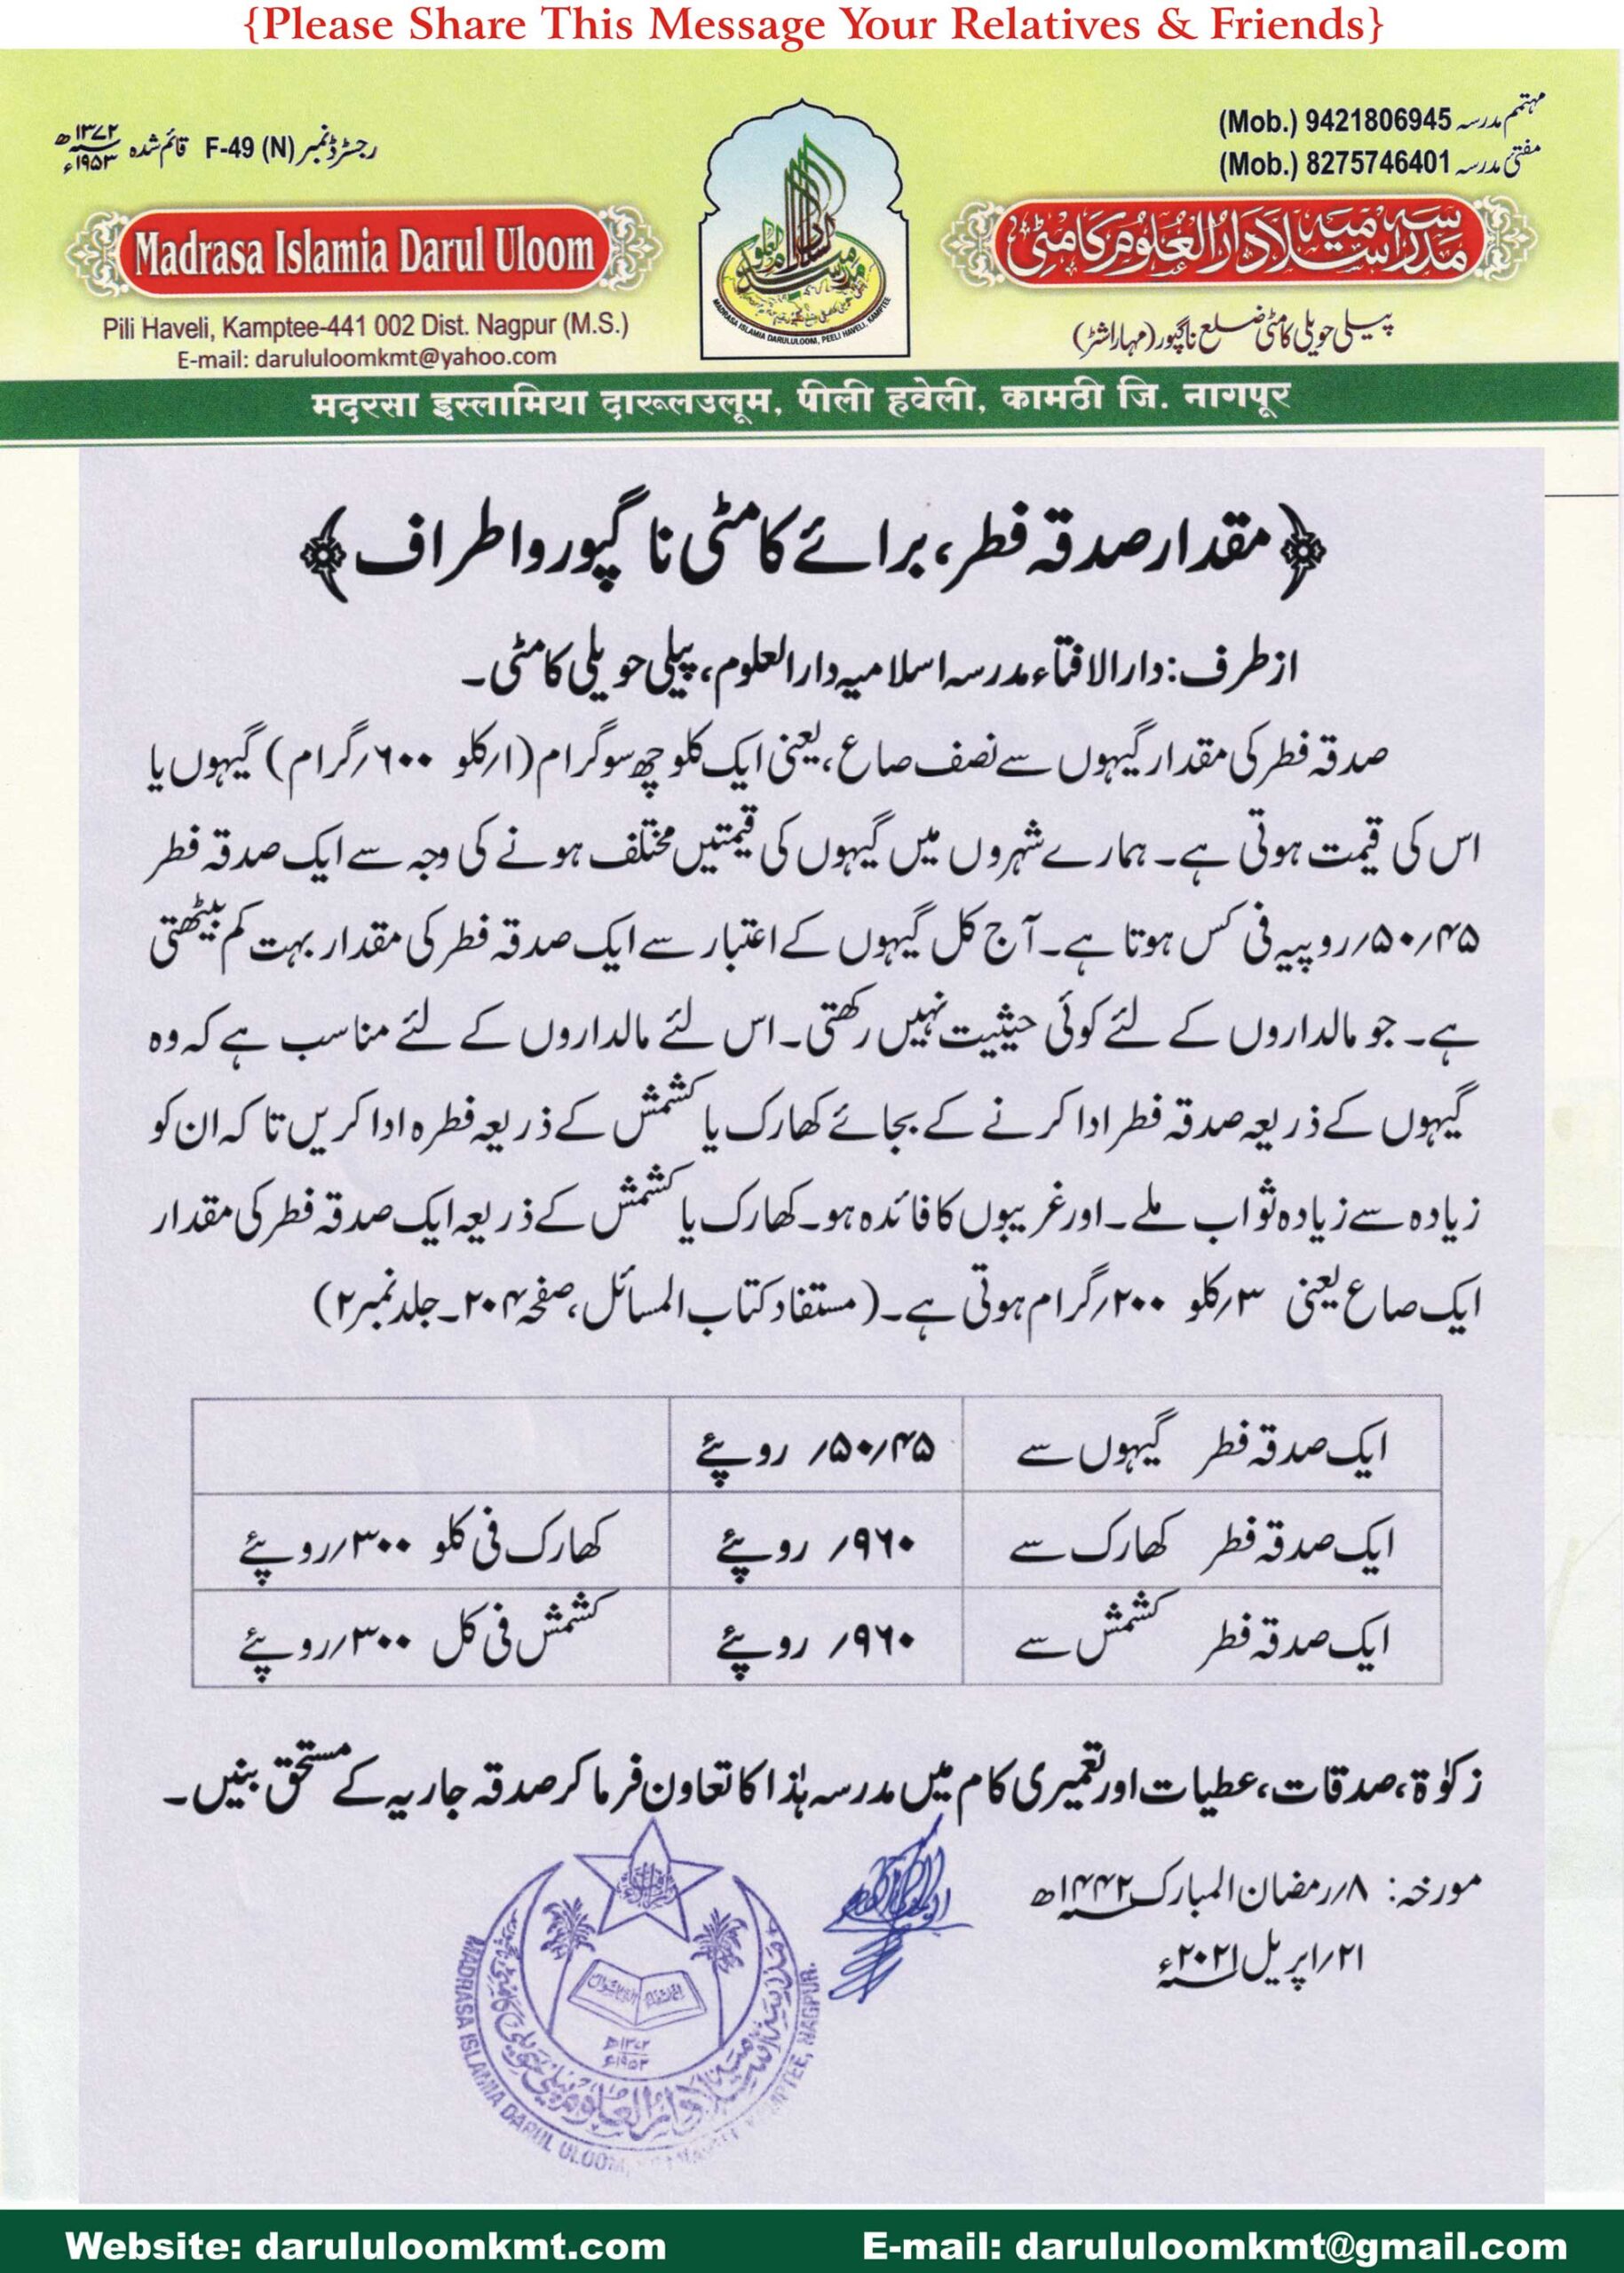 {Please Share This Message Your Relatives & Friends}
مہتمم مدرسہ 9421806945 (Mob.)
مفتی مدرسہ 8275746401 (Mob.)
رجسٹرڈ نمبر F-49 (N) قائم شدہ ۱۳۷۲ھ ۱۹۵۳ء
Madrasa Islamia Darul Uloom
مدرسہ اسلامیہ دارالعلوم کامٹی
Pili Haveli, Kamptee-441 002 Dist. Nagpur (M.S.)
E-mail: darululoomkmt@yahoo.com
پیلی حویلی کامٹی ضلع ناگپور (مہاراشٹر)
MADRASA ISLAMIA DARULULOOM, PEELI HAVELI, KAMPTEE
मदरसा इस्लामिया दारूलउलूम, पीली हवेली, कामठी जि. नागपूर
﴿مقدار صدقہ فطر، برائے کامٹی ناگپور و اطراف﴾
از طرف: دارالافتاء مدرسہ اسلامیہ دارالعلوم، پیلی حویلی کامٹی۔
صدقہ فطر کی مقدار گیہوں سے نصف صاع، یعنی ایک کلو چھ سو گرام (۱/کلو ۶۰۰/گرام) گیہوں یا
اس کی قیمت ہوتی ہے۔ ہمارے شہروں میں گیہوں کی قیمتیں مختلف ہونے کی وجہ سے ایک صدقہ فطر
۵۰/۴۵/روپیہ فی کس ہوتا ہے۔ آج کل گیہوں کے اعتبار سے ایک صدقہ فطر کی مقدار بہت کم بیٹھتی
ہے۔ جو مالداروں کے لئے کوئی حیثیت نہیں رکھتی۔ اس لئے مالداروں کے لئے مناسب ہے کہ وہ
گیہوں کے ذریعہ صدقہ فطر ادا کرنے کے بجائے کھارک یا کشمش کے ذریعہ فطرہ ادا کریں تا کہ ان کو
زیادہ سے زیادہ ثواب ملے۔ اور غریبوں کا فائدہ ہو۔ کھارک یا کشمش کے ذریعہ ایک صدقہ فطر کی مقدار
ایک صاع یعنی ۳/کلو ۲۰۰/گرام ہوتی ہے۔ (مستفاد کتاب المسائل، صفحہ ۲۰۴۔ جلد نمبر ۲)
ایک صدقہ فطر گیہوں سے ۵۰/۴۵/ روپئے
ایک صدقہ فطر کھارک سے ۹۶۰/ روپئے کھارک فی کلو ۳۰۰/روپئے
ایک صدقہ فطر کشمش سے ۹۶۰/ روپئے کشمش فی کل ۳۰۰/روپئے
زکوٰۃ، صدقات، عطیات اور تعمیری کام میں مدرسہ ہٰذا کا تعاون فرما کر صدقہ جاریہ کے مستحق بنیں۔
مورخہ: ۸/رمضان المبارک ۱۴۴۲ھ
۲۱/اپریل ۲۰۲۱ء
MADRASA ISLAMIA DARUL ULOOM, KAMPTEE, NAGPUR.
Website: darululoomkmt.com
E-mail: darululoomkmt@gmail.com